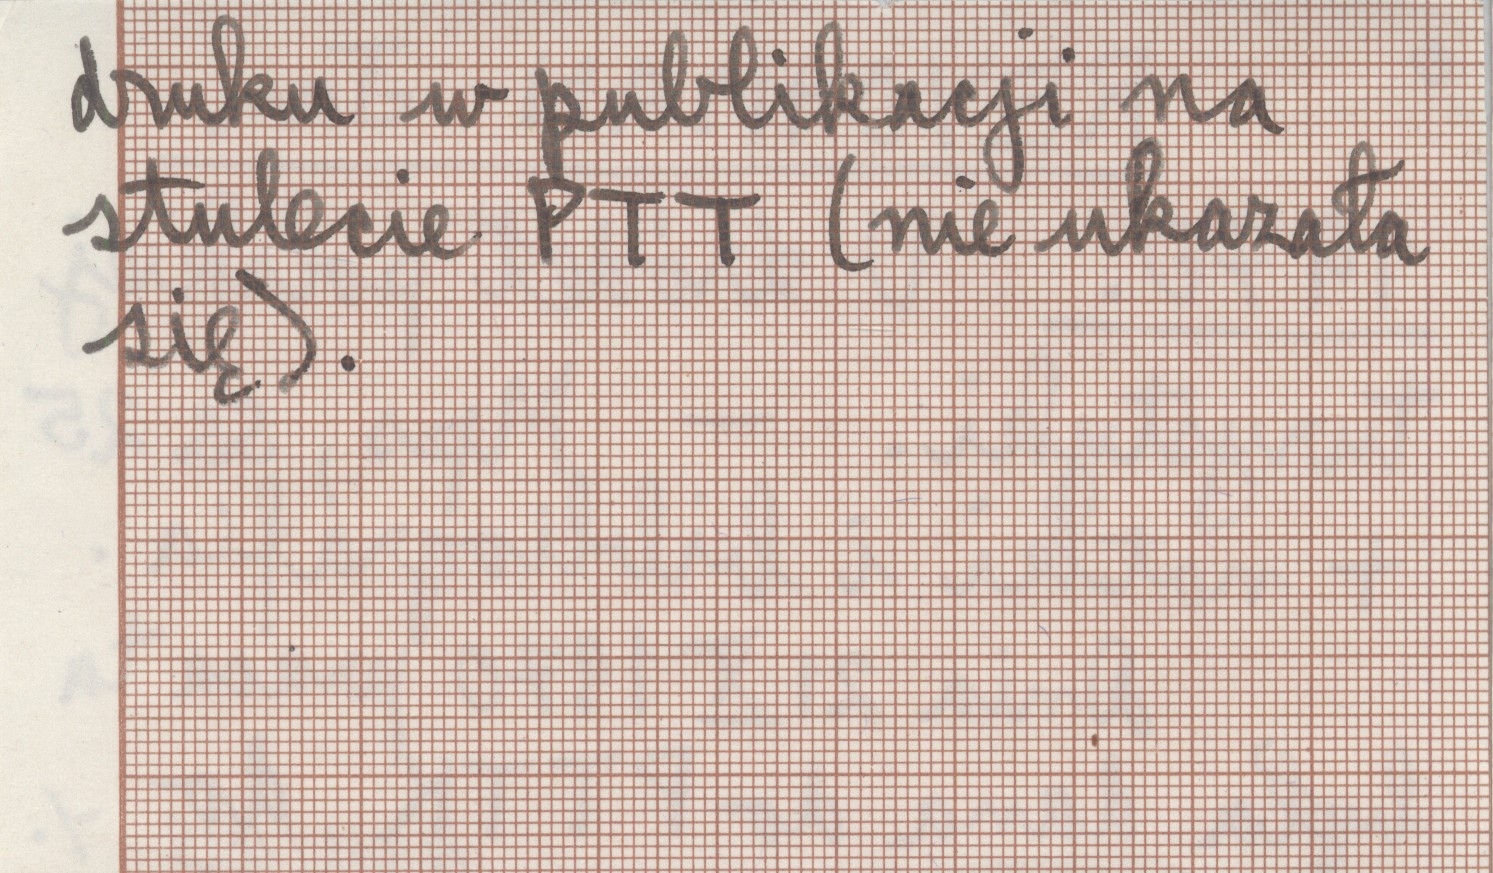 druku w publikacji na
stulecie PTT (nie ukazała
się).